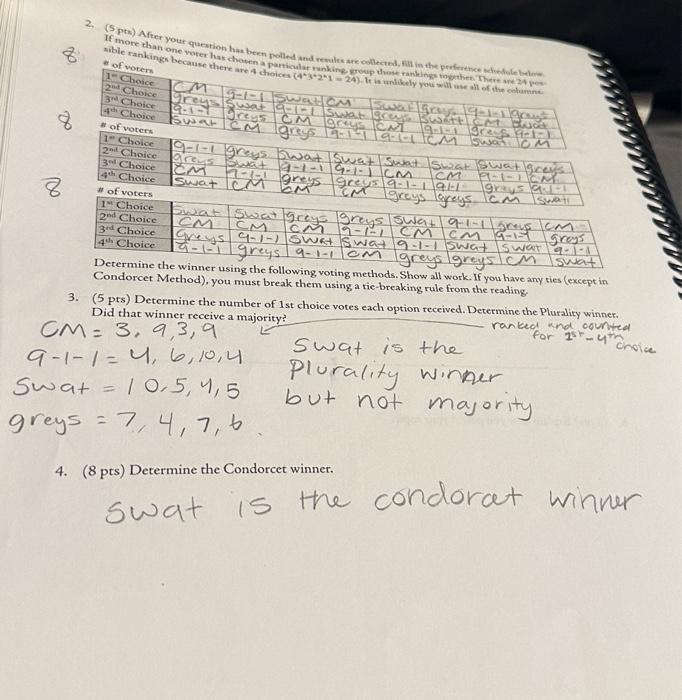 2. (5 pts) After your question has been polled and results are collected, fill in the preference schedule below.
If more than one voter has chosen a particular ranking, group those rankings together. There are 24 pos-
sible rankings because there are 4 choices (4*3*2*1 = 24). It is unlikely you will use all of the columns.
8
# of voters
1st Choice CM 9-1-1 Swat CM Swat Greys 9-1-1
2nd Choice Greys Swat 9-1-1 Swat greys
3rd Choice 9-1-1 greys CM greys CM 9-1-1 greys 9-1-1
4th Choice Swat CM greys 9-1-1 9-1-1 CM Swat CM
8
# of voters
1st Choice 9-1-1 greys Swat Swat Swat Swat Swat greys
2nd Choice greys Swat 9-1-1 9-1-1 CM CM 9-1-1 CM
3rd Choice CM 9-1-1 greys greys 9-1-1 911 greys 9-1-1
4th Choice Swat CM CM CM greys greys CM Swat
8
# of voters
1st Choice Swat Swat greys greys Swat 9-1-1 greys CM
2nd Choice CM CM CM 9-1-1 CM CM 9-1-1 greys
3rd Choice Greys 9-1-1 Swat Swat 9-1-1 Swat Swat 9-1-1
4th Choice 9-1-1 greys 9-1-1 CM greys greys CM Swat
Determine the winner using the following voting methods. Show all work. If you have any ties (except in
Condorcet Method), you must break them using a tie-breaking rule from the reading.
3. (5 pts) Determine the number of 1st choice votes each option received. Determine the Plurality winner.
Did that winner receive a majority?
ranked and counted
for 1st-4th choice
CM = 3, 9,3,9
9-1-1 = 4, 6, 10, 4
Swat = 10,5, 4, 5
greys = 7, 4, 7, 6
Swat is the
Plurality winner
but not majority
4. (8 pts) Determine the Condorcet winner.
Swat is the condorcet winner